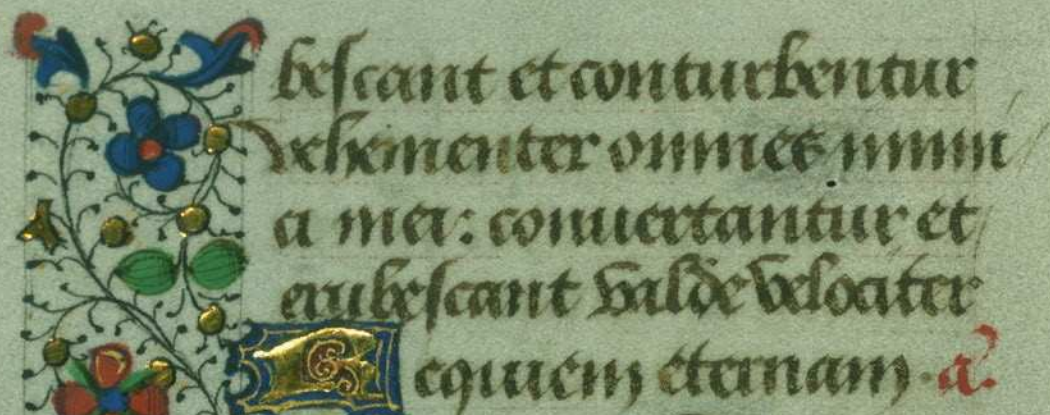 bescant et conturbentur
vehementer omnes inimi
ci mei: convertantur et
erubescant valde velociter
Requiem eternam. a.